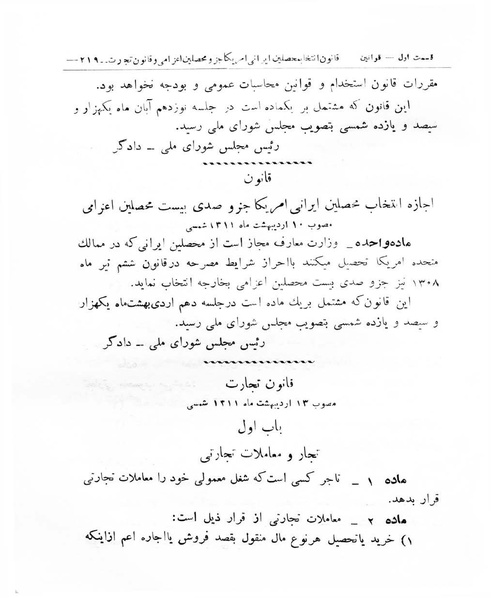 قسمت اول — قوانین قانون انتخاب محصلین ایرانی امریکا جزو محصلین اعزامی و قانون تجارت.. ۲۱۹—
مقررات قانون استخدام و قوانین محاسبات عمومی و بودجه نخواهد بود.
این قانون که مشتمل بر یکماده است در جلسه نوزدهم آبان ماه یکهزار و
سیصد و یازده شمسی بتصویب مجلس شورای ملی رسید.
رئیس مجلس شورای ملی ــ دادگر
قانون
اجازه انتخاب محصلین ایرانی امریکا جزو صدی بیست محصلین اعزامی
مصوب ۱۰ اردیبهشت ماه ۱۳۱۱ شمسی
ماده واحده ــ وزارت معارف مجاز است از محصلین ایرانی که در ممالک
متحده امریکا تحصیل میکنند با احراز شرایط مصرحه در قانون ششم تیر ماه
۱۳۰۸ نیز جزو صدی بیست محصلین اعزامی بخارجه انتخاب نماید.
این قانون که مشتمل بریك ماده است در جلسه دهم اردی بهشت ماه یکهزار
و سیصد و یازده شمسی بتصویب مجلس شورای ملی رسید.
رئیس مجلس شورای ملی ــ دادگر
قانون تجارت
مصوب ۱۳ اردیبهشت ماه ۱۳۱۱ شمسی
باب اول
تجار و معاملات تجارتی
ماده ۱ ــ تاجر کسی است که شغل معمولی خود را معاملات تجارتی
قرار بدهد.
ماده ۲ ــ معاملات تجارتی از قرار ذیل است:
۱) خرید یا تحصیل هر نوع مال منقول بقصد فروش یا اجاره اعم از اینکه